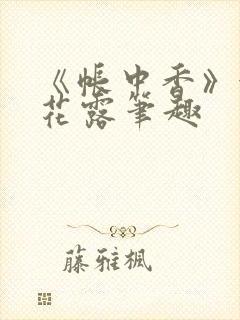 《帐中香》
花露笔趣
藤雅枫